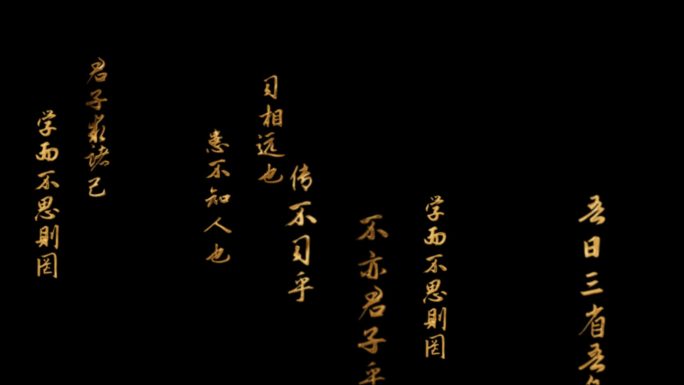 学而不思則罔
君子求诸己
患不知人也
习相远也
传不习乎
不亦君子乎
学而不思則罔
吾日三省吾